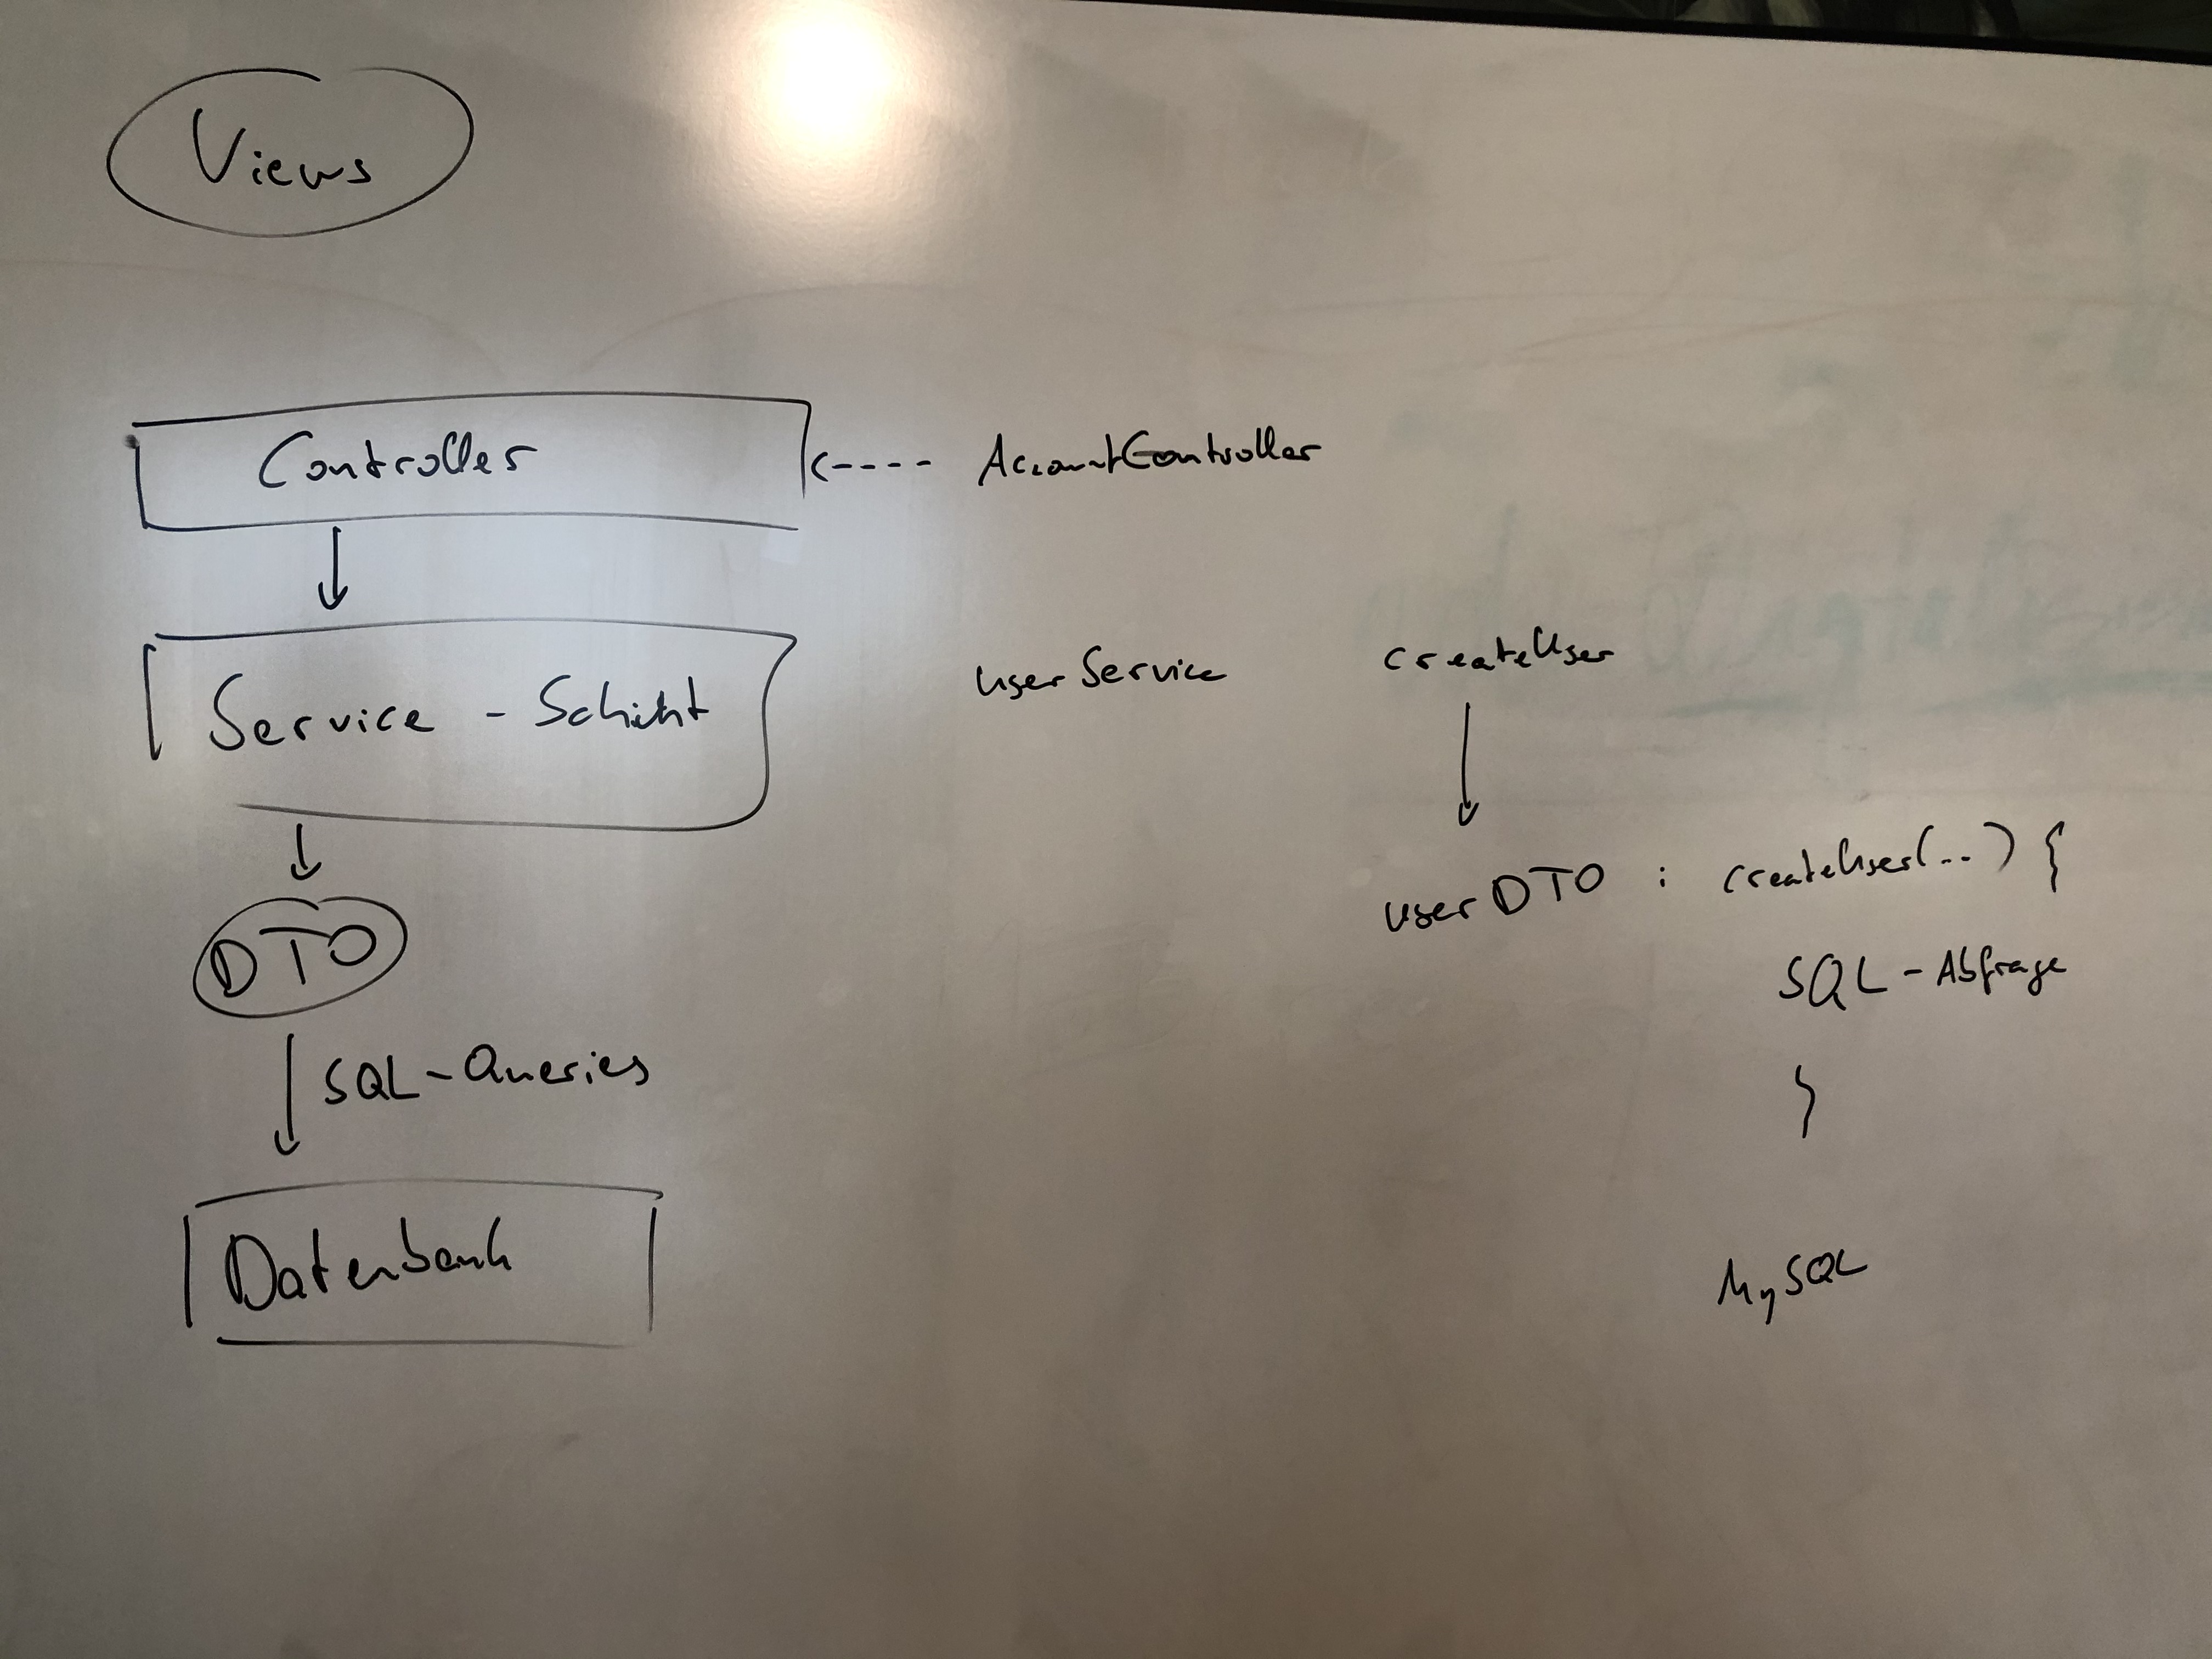 Views
Controller <---- AccountController
Service - Schicht
userService createUser
userDTO : createUser(...) {
DTO
SQL - Abfrage
SQL - Queries
}
Datenbank
MySQL